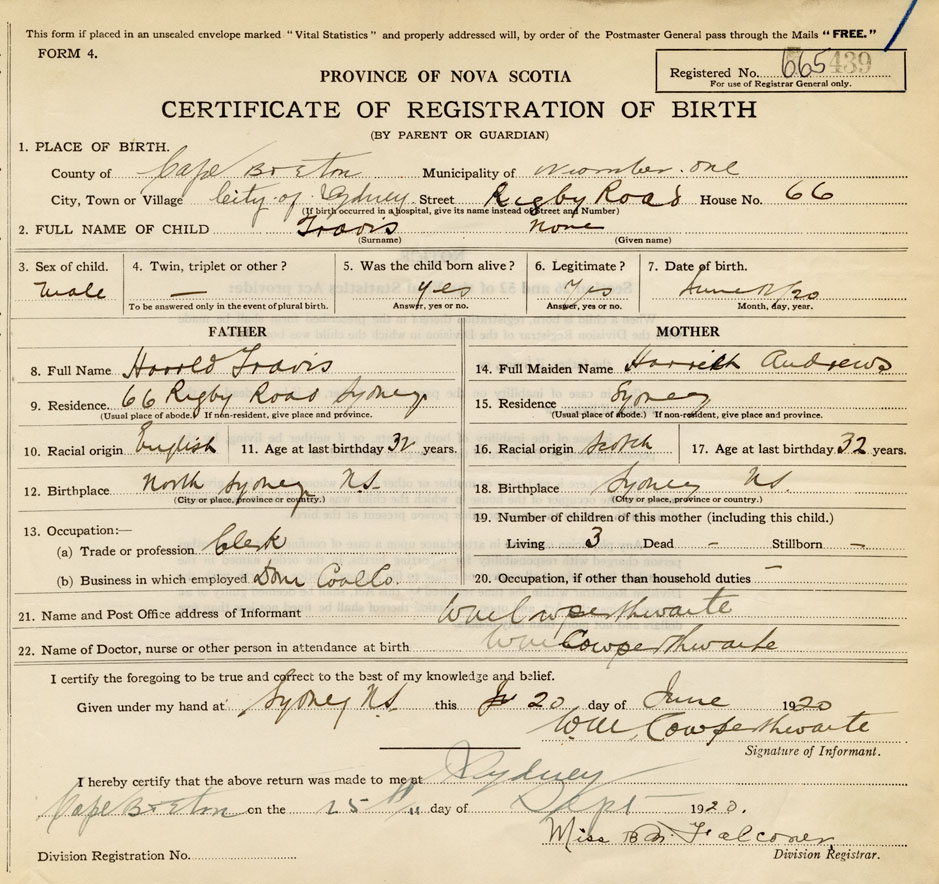 This form if placed in an unsealed envelope marked "Vital Statistics" and properly addressed will, by order of the Postmaster General pass through the Mails "FREE."
FORM 4.
PROVINCE OF NOVA SCOTIA
Registered No. 665 439
For use of Registrar General only.
CERTIFICATE OF REGISTRATION OF BIRTH
(BY PARENT OR GUARDIAN)
1. PLACE OF BIRTH.
County of Cape Breton Municipality of Number One
City, Town or Village City of Sydney Street Rigby Road House No. 66
(If birth occurred in a hospital, give its name instead of Street and Number)
2. FULL NAME OF CHILD Travis none
(Surname) (Given name)
3. Sex of child. 4. Twin, triplet or other? 5. Was the child born alive? 6. Legitimate? 7. Date of birth.
Male — yes Yes June /20
To be answered only in the event of plural birth. Answer, yes or no. Answer, yes or no. Month, day, year.
FATHER MOTHER
8. Full Name Harrold Travis 14. Full Maiden Name Andrews
9. Residence. 66 Rigby Road Sydney 15. Residence Sydney
(Usual place of abode.) If non-resident, give place and province. (Usual place of abode.) If non-resident, give place and province.
10. Racial origin English 11. Age at last birthday 32 years. 16. Racial origin Scotch 17. Age at last birthday 32 years.
12. Birthplace North Sydney N.S. 18. Birthplace Sydney N.S.
(City or place, province or country.) (City or place, province or country.)
13. Occupation:— 19. Number of children of this mother (including this child.)
(a) Trade or profession Clerk Living 3 Dead – Stillborn –
(b) Business in which employed Dom Coal Co. 20. Occupation, if other than household duties –
21. Name and Post Office address of Informant Wm Cowperthwaite
22. Name of Doctor, nurse or other person in attendance at birth Wm Cowperthwaite
I certify the foregoing to be true and correct to the best of my knowledge and belief.
Given under my hand at Sydney N.S. this 20 day of June 1920
Wm. Cowperthwaite
Signature of Informant.
I hereby certify that the above return was made to me at Sydney
Cape Breton on the 25th day of Sept 1920.
Miss B. M. Falconer
Division Registration No. Division Registrar.